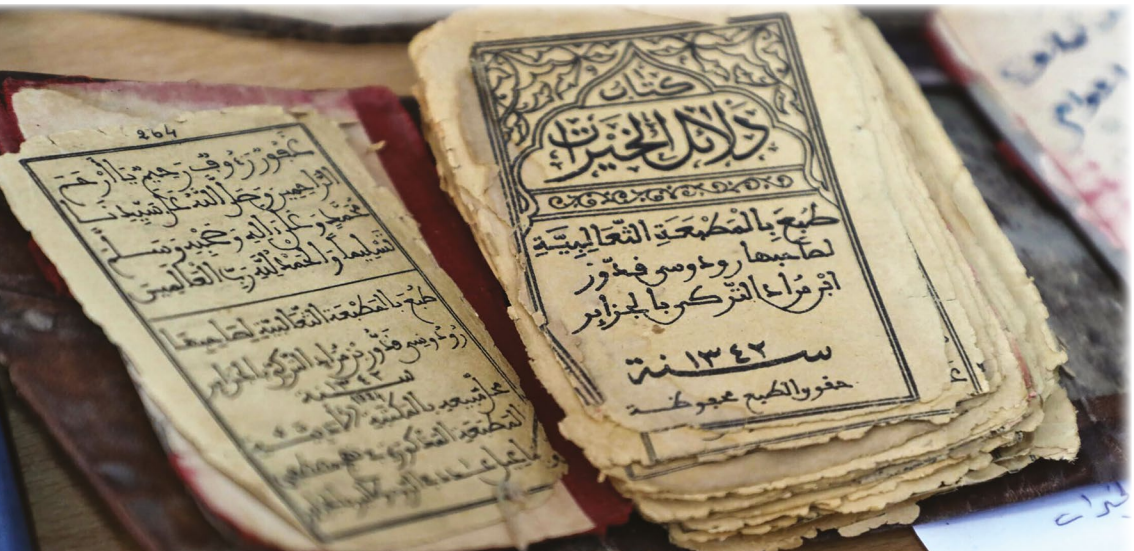 كتاب
دلائل الخيرات
طُبِعَ بِالْمَطْبَعَةِ الثَّعَالِبِيَّةِ
لصاحبها رودوسي قدّور
ابْن مُرَاد التركي بالجزاير
سنة ١٣٤٢
حقوق الطبع محفوظة
264
غفور رءوف رحيم يا أرحم
الراحمين وصلى الله على سيدنا
محمد وعلى ءاله وصحبه وسلم
تسليما والحمد لله رب العالمين
طبع بالمطبعة الثعالبية لصاحبها
رودوسي قدور بن مراد التركي بالجزاير
سنة